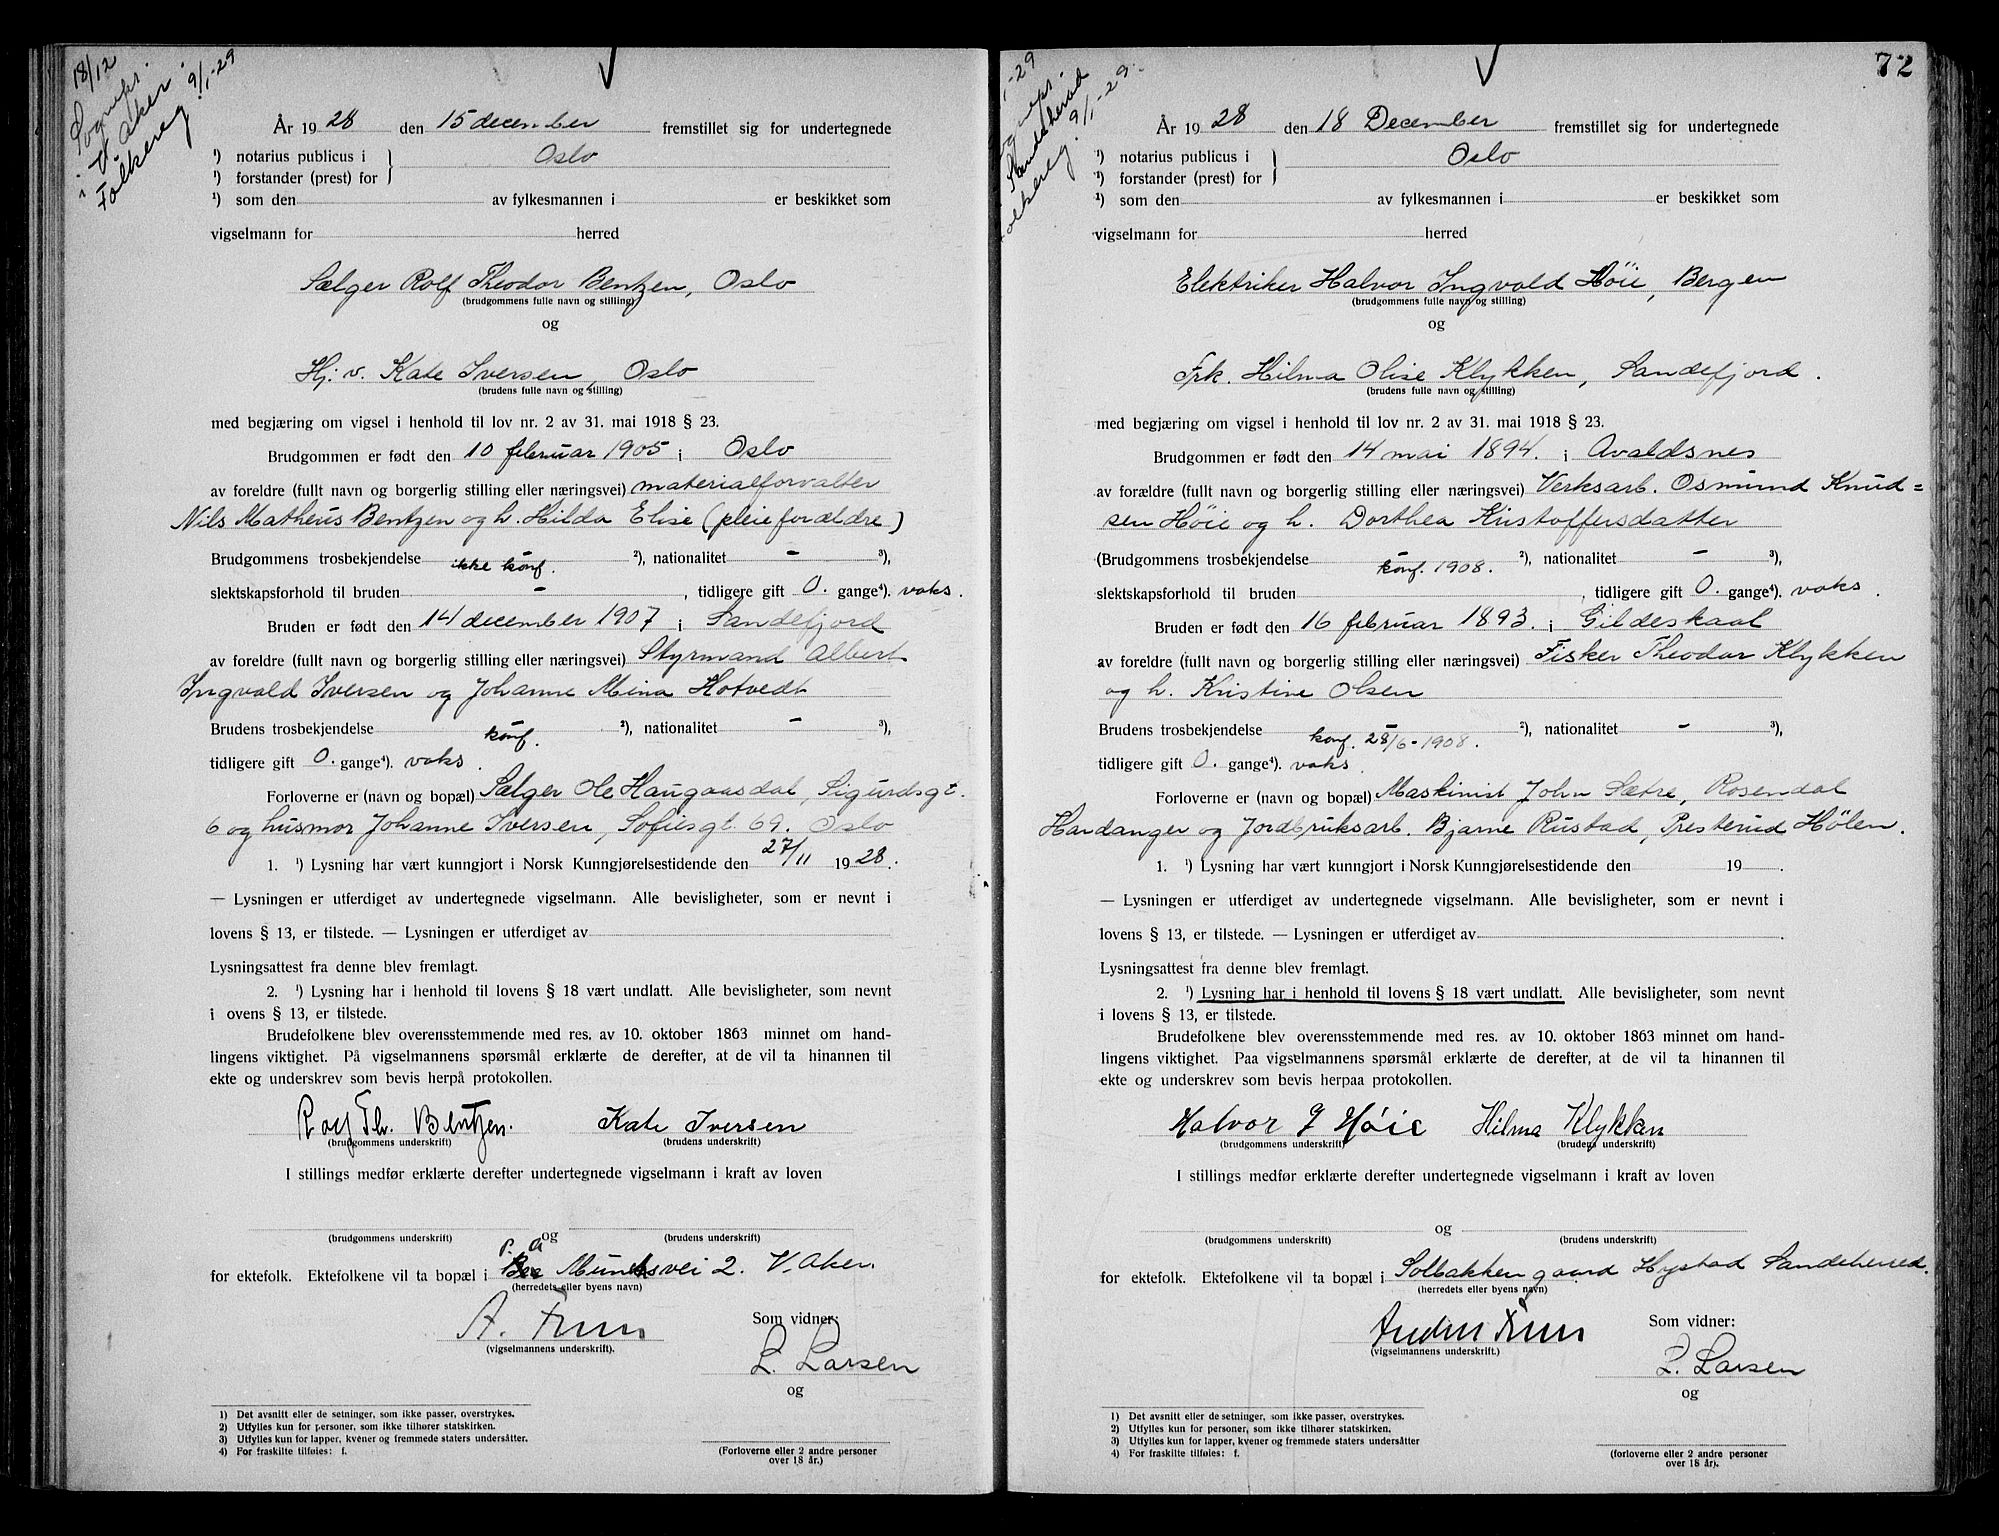 18/12
Sognepr.
i V. Aker.
Folkereg. 9/1-29
År 1928 den 15 december fremstillet sig for undertegnede
¹) notarius publicus i } Oslo
¹) forstander (prest) for
¹) som den av fylkesmannen i er beskikket som
vigselmann for herred
Sælger Rolf Theodor Bentzen, Oslo
(brudgommens fulle navn og stilling)
og
Hj. v. Kate Iversen, Oslo
(brudens fulle navn og stilling)
med begjæring om vigsel i henhold til lov nr. 2 av 31. mai 1918 § 23.
Brudgommen er født den 10 februar 1905 i Oslo
av foreldre (fullt navn og borgerlig stilling eller næringsvei) materialforvalter
Nils Matheus Bentzen og h. Hilda Elise (pleieforældre)
Brudgommens trosbekjendelse - ²), nationalitet - ³),
ikke konf.
slektskapsforhold til bruden - , tidligere gift 0. gange⁴). voks.
Bruden er født den 14 december 1907 i Sandefjord
av foreldre (fullt navn og borgerlig stilling eller næringsvei) Styrmand Albert
Ingvald Iversen og Johanne Mina Hotvedt
Brudens trosbekjendelse - ²), nationalitet - ³),
konf.
tidligere gift 0. gange⁴). voks.
Forloverne er (navn og bopæl) Sælger Ole Haugaasdal, Sigurdsgt.
6 og husmor Johanne Iversen, Sofiesgt. 69. Oslo
1. ¹) Lysning har vært kunngjort i Norsk Kunngjørelsestidende den 27/11 1928.
— Lysningen er utferdiget av undertegnede vigselmann. Alle bevisligheter, som er nevnt i
lovens § 13, er tilstede. — Lysningen er utferdiget av
Lysningsattest fra denne blev fremlagt.
2. ¹) Lysning har i henhold til lovens § 18 vært undlatt. Alle bevisligheter, som nevnt
i ovens § 13, er tilstede.
Brudefolkene blev overensstemmende med res. av 10. oktober 1863 minnet om hand-
lingens viktighet. På vigselmannens spørsmål erklærte de derefter, at de vil ta hinannen til
ekte og underskrev som bevis herpå protokollen.
Rolf Th. Bentzen. Kate Iversen
(brudgommens underskrift) (brudens underskrift)
I stillings medfør erklærte derefter undertegnede vigselmann i kraft av loven
og
(brudgommens underskrift) (brudens underskrift)
P. A
for ektefolk. Ektefolkene vil ta bopæl i Munchsvei 2. V. Aker.
(herredets eller byens navn)
A. Friis Som vidner:
(vigselmannens underskrift).
L. Larsen
og
1) Det avsnitt eller de setninger, som ikke passer, overstrykes.
2) Utfylles kun for personer, som ikke tilhører statskirken.
3) Utfylles kun for lapper, kvener og fremmede staters undersåtter.
4) For fraskilte tilføies: f.
(Forloverne eller 2 andre personer
over 18 år.)
72
-29
Sandeherad
Folkereg. 9/1-29.
År 1928 den 18 December fremstillet sig for undertegnede
¹) notarius publicus i } Oslo
¹) forstander (prest) for
¹) som den av fylkesmannen i er beskikket som
vigselmann for herred
Elektriker Halvor Ingvald Høie, Bergen
(brudgommens fulle navn og stilling)
og
Frk. Hilma Olise Klykken, Sandefjord.
(brudens fulle navn og stilling)
med begjæring om vigsel i henhold til lov nr. 2 av 31. mai 1918 § 23.
Brudgommen er født den 14 mai 1894. i Avaldsnes
av forældre (fullt navn og borgerlig stilling eller næringsvei) Verksarb. Osmund Knud=
sen Høie og h. Dorthea Kristoffersdatter
(Brudgommens trosbekjendelse - ²), nationalitet - ³),
konf. 1908.
slektskapsforhold til bruden , tidligere gift 0. gange⁴). voks.
Bruden er født den 16 februar 1893. i Gildeskaal
av foreldre (fullt navn og borgerlig stilling eller næringsvei) Fisker Theodor Klykken
og h. Kristine Olsen
Brudens trosbekjendelse - ²), nationalitet - ³),
konf. 28/6-1908.
tidligere gift 0. gange⁴). voks.
Forloverne er (navn og bopæl) Maskinist John Sætre, Rosendal
Hardanger og Jordbruksarb. Bjarne Rustad, Presterud Hølen.
1. ¹) Lysning har vært kunngjort i Norsk Kunngjørelsestidende den 19 .
— Lysningen er utferdiget av undertegnede vigselmann. Alle bevisligheter, som er nevnt i
lovens § 13, er tilstede. — Lysningen er utferdiget av .
Lysningsattest fra denne blev fremlagt.
2. ¹) Lysning har i henhold til lovens § 18 vært undlatt. Alle bevisligheter, som nevnt
i lovens § 13, er tilstede.
Brudefolkene blev overensstemmende med res. av 10. oktober 1863 minnet om hand-
lingens viktighet. Paa vigselmannens spørsmål erklærte de derefter, at de vil ta hinannen til
ekte og underskrev som bevis herpaa protokollen.
Halvor I Høie Hilma Klykken
(brudgommens underskrift) (brudens underskrift)
I stillings medfør erklærte derefter undertegnede vigselmann i kraft av loven
og
(brudgommens underskrift) (brudens underskrift)
for ektefolk. Ektefolkene vil ta bopæl i Solbakken gaard Hystad Sandeherred.
(herredets eller byens navn)
Anders Friis Som vidner:
(vigselmannens underskrift.)
L. Larsen
og
1) Det avsnitt eller de setninger, som ikke passer, overstrykes.
2) Utfylles kun for personer, som ikke tilhører statskirken.
3) Utfylles kun for lapper, kvener og fremmede staters undersåtter
4) For fraskilte tilføies: f.
(forloverne eller 2 andre personer
over 18 år).